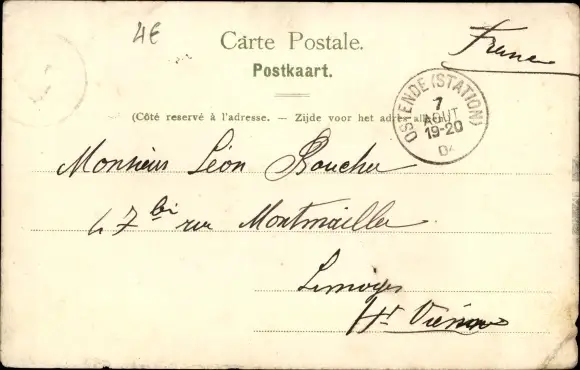 4€
Carte Postale.
France
Postkaart.
(Côté reservé à l'adresse. — Zijde voor het adres
OSTENDE (STATION)
7
AOUT
19-20
04
Monsieur Léon Boucher
47 bis rue Montmailler
Limoges
Hte Vienne